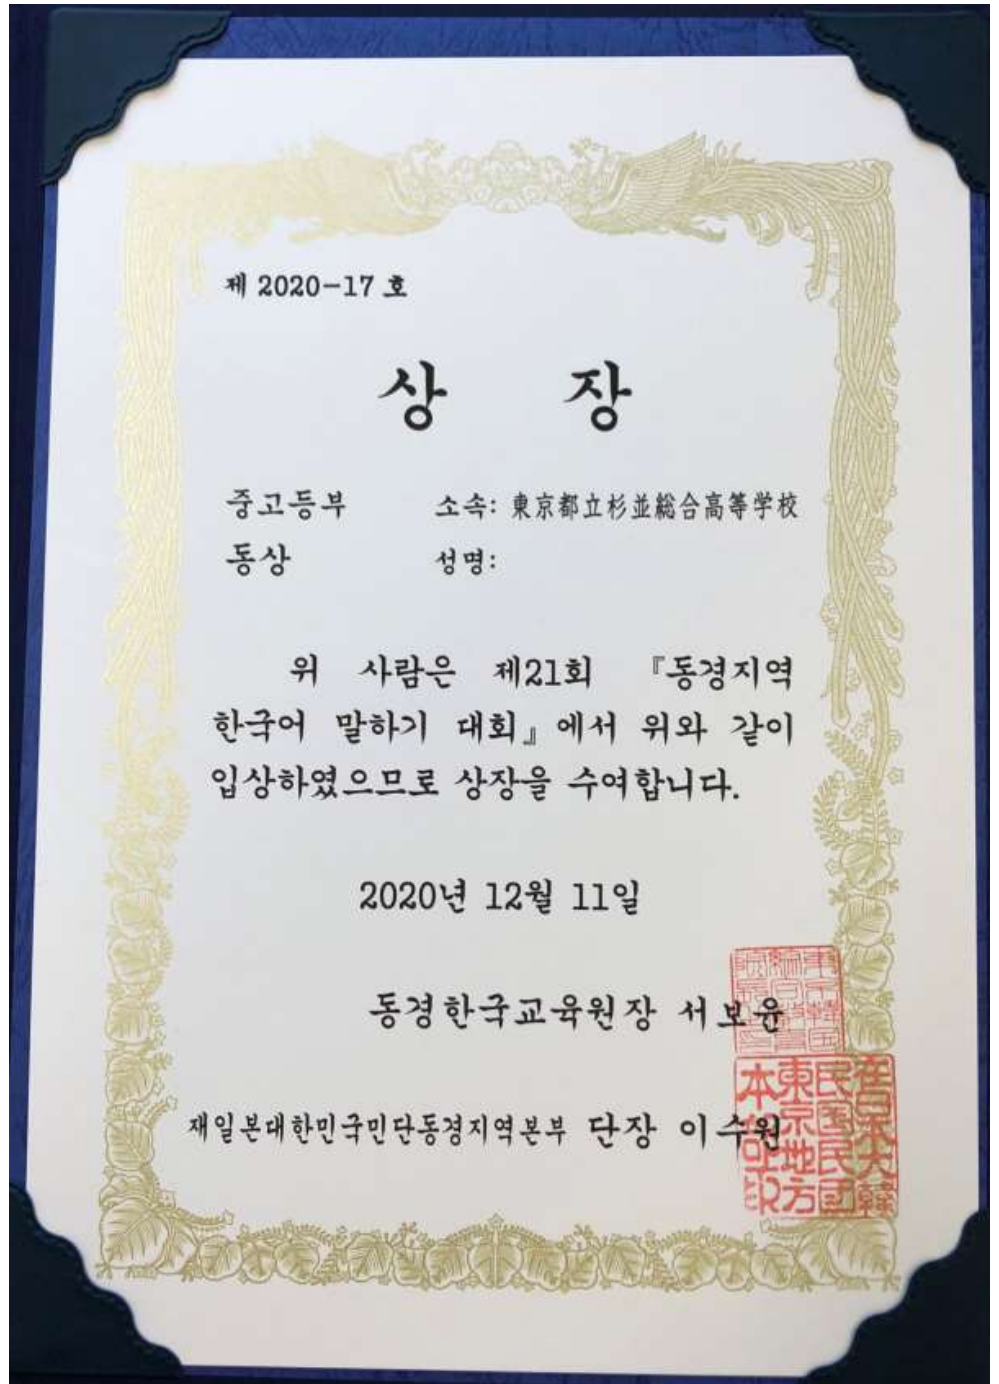 제 2020-17 호
상 장
중고등부 소속: 東京都立杉並総合高等学校
동상 성명:
위 사람은 제21회 『동경지역
한국어 말하기 대회』에서 위와 같이
입상하였으므로 상장을 수여합니다.
2020년 12월 11일
동경한국교육원장 서보윤
재일본대한민국민단동경지역본부 단장 이수원